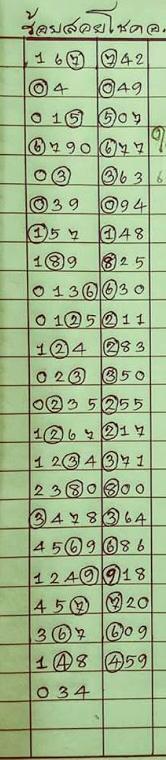 ร้อยสอยโชค อ.
1 6 7 742
0 4 049
0 1 5 507
6 7 9 0 677
0 3 363
0 3 9 094
1 5 7 148
1 8 9 825
0 1 3 6 630
0 1 2 5 211
1 2 4 283
0 2 3 350
0 2 3 5 255
1 2 6 7 217
1 2 3 4 371
2 3 8 0 800
3 4 7 8 364
4 5 6 9 686
1 2 4 9 918
4 5 7 720
3 6 7 609
1 4 8 459
0 3 4